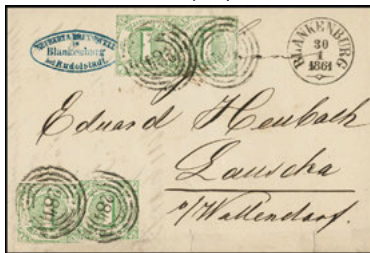 in
Blankenburg
bei Rudolstadt.
BLANKENBURG
30
1
1861
Eduard Heubach
Lauscha
o/Wallendorf.
281
281